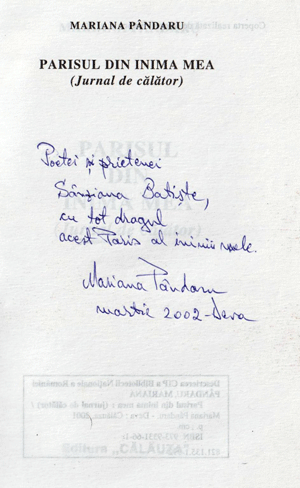 MARIANA PÂNDARU
PARISUL DIN INIMA MEA
(Jurnal de călător)
Poetei și prietenei
Sânziana Batiște,
cu tot dragul
acest Paris al inimii mele.
Mariana Pândaru
martie 2002-Deva